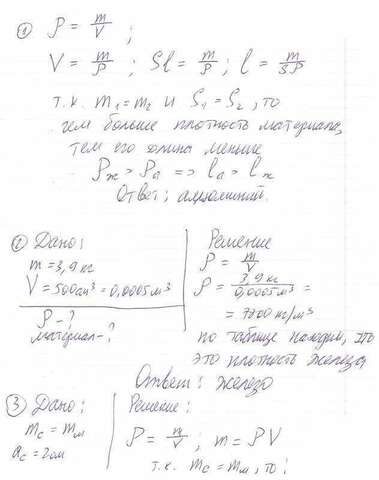 ① ρ = m/V ;
V = m/ρ ; Sl = m/ρ ; l = m/Sρ
т.к. m₁=m₂ и S₁=S₂, то
чем больше плотность материала,
тем его длина меньше
ρж > ρа => lа > lж
Ответ: алюминий.
② Дано:
m = 3,9 кг
V = 500 см³ = 0,0005 м³
ρ - ?
материал - ?
Решение
ρ = m/V
ρ = 3,9 кг/0,0005 м³ =
= 7800 кг/м³
по таблице находим, что
это плотность железа
Ответ: железо
③ Дано:
mс = mм
aс = 2 см
Решение:
ρ = m/V ; m = ρV
т.к. mс = mм, то: